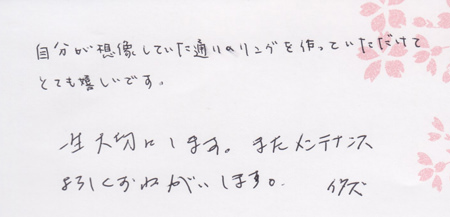 自分が想像していた通りのリングを作っていただけて
とても嬉しいです。
一生大切にします。またメンテナンス
よろしくおねがいします。